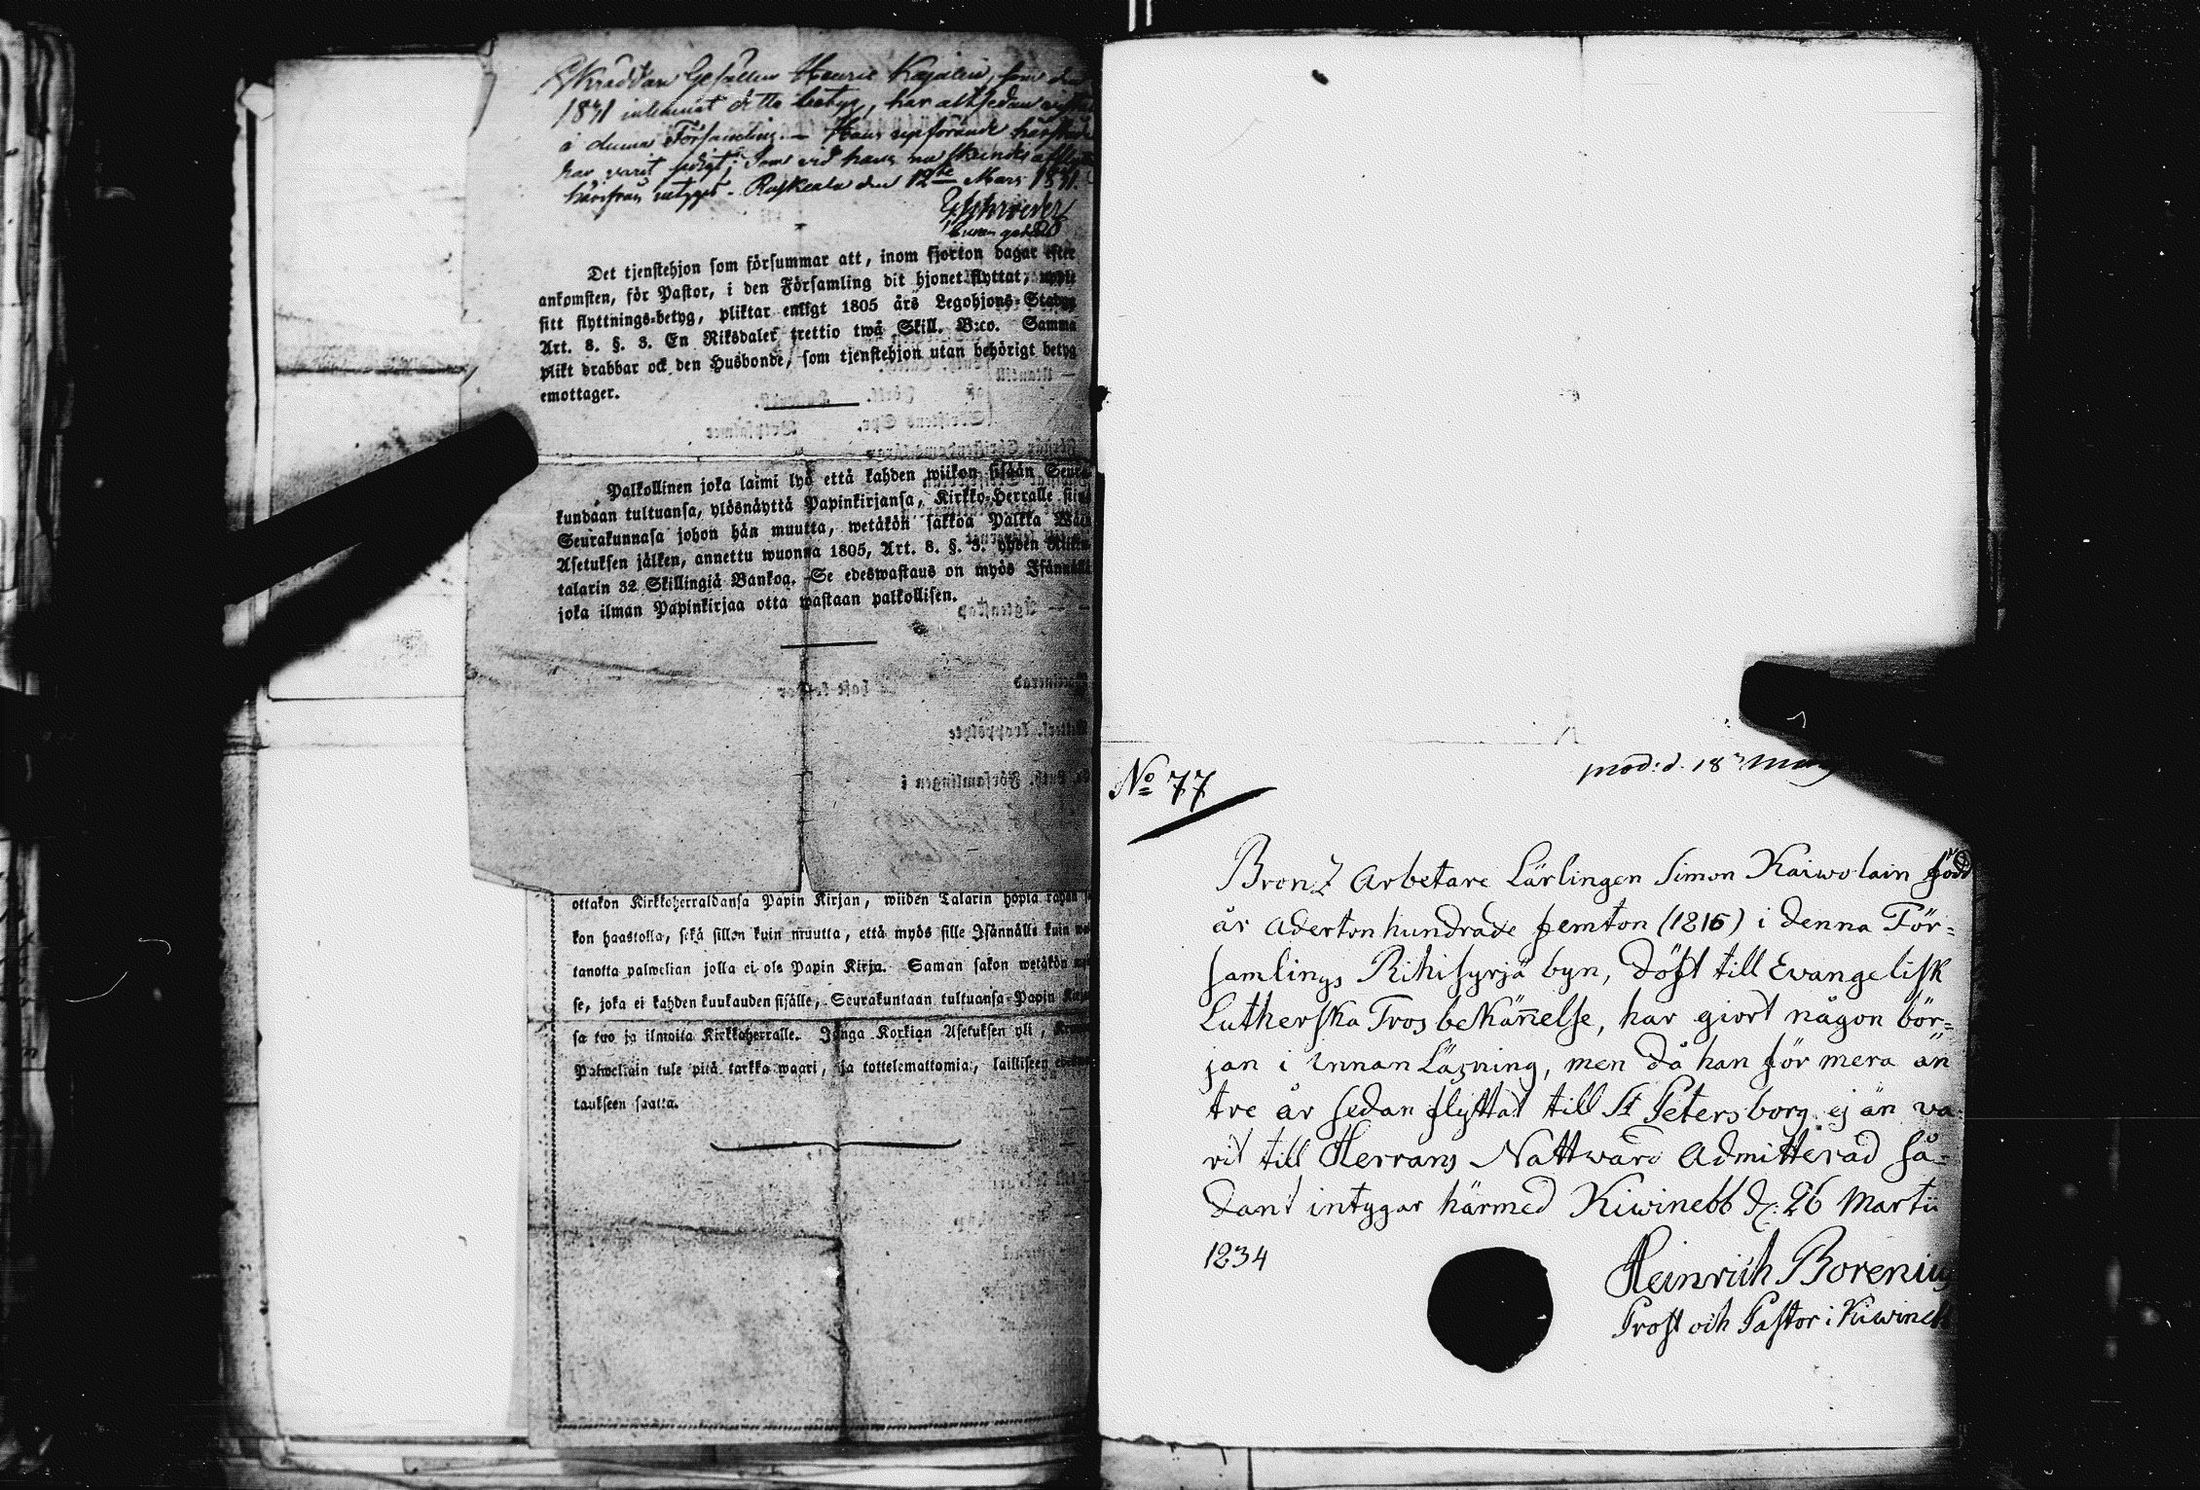 Skräddare Gesällen Henric Kajalin, som den
1831 inlemnat detta betyg, har alltsedan
i denna Församling. — Hans uppförande härstädes
har varit sedigt; som vid hans nu skeende afflytt
härifrån intygas. Ruskeala den 12te Mars 1831.
G. Schroeder
Det tjenstehjon som försummar att, inom fjorton dagar efter
ankomsten, för Pastor, i den Församling dit hjonet flyttat, uppte
sitt flyttnings-betyg, pliktar enligt 1805 års Legohjons-Stadga
Art. 8. §. 3. En Riksdaler trettio twå Skill. B:co. Samma
plikt drabbar ock den Husbonde, som tjenstehjon utan behörigt betyg
emottager.
Palkollinen joka laimi lyö että kahden wiikon sisään Seura-
kundaan tultuansa, ylösnäyttä Papinkirjansa, Kirkko-Herralle siinä
Seurakunnasa johon hän muutta, wetäkön sakkoa Palkka Wäen
Asetuksen jälken, annettu wuonna 1805, Art. 8. §. 3. yhden Rikin-
talarin 32 Skillingiä Bankoa. Se edeswastaus on myös Isännällä
joka ilman Papinkirjaa otta wastaan palkollisen.
ottakon Kirkkoherraldansa Papin Kirjan, wiiden Talarin hopia rahan
kon haastolla, sekä sillon kuin muutta, että myös sille Isännälle kuin
tanotta palwelian jolla ei ole Papin Kirja. Saman sakon wetäkön
se, joka ei kahden kuukauden sisälle, Seurakuntaan tultuansa Papin Kirja
sa tuo ja ilmoita Kirkkoherralle. Jonga Korkian Asetuksen yli,
Palweliain tule pitä tarkka waari, ja tottelemattomia, lailliseen
taukseen saatta.
No 77
prod: d. 18
Bronz Arbetare Lärlingen Simon Kaiwolain född
år adertonhundrade femton (1815) i denna För=
samlings Rihisyrjä byn, döpt till Evangelisk
Lutherska Trosbekännelse, har giort någon bör=
jan i innanläsning, men då han för mera än
tre år sedan flyttat till St Petersborg ej än va=
rit till Herrans Nattward Admitterad så=
dant intygar härmed Kiwinebb d: 26 Martii
1834
Heinrich Borenius
Prost och Pastor i Kiwinebb